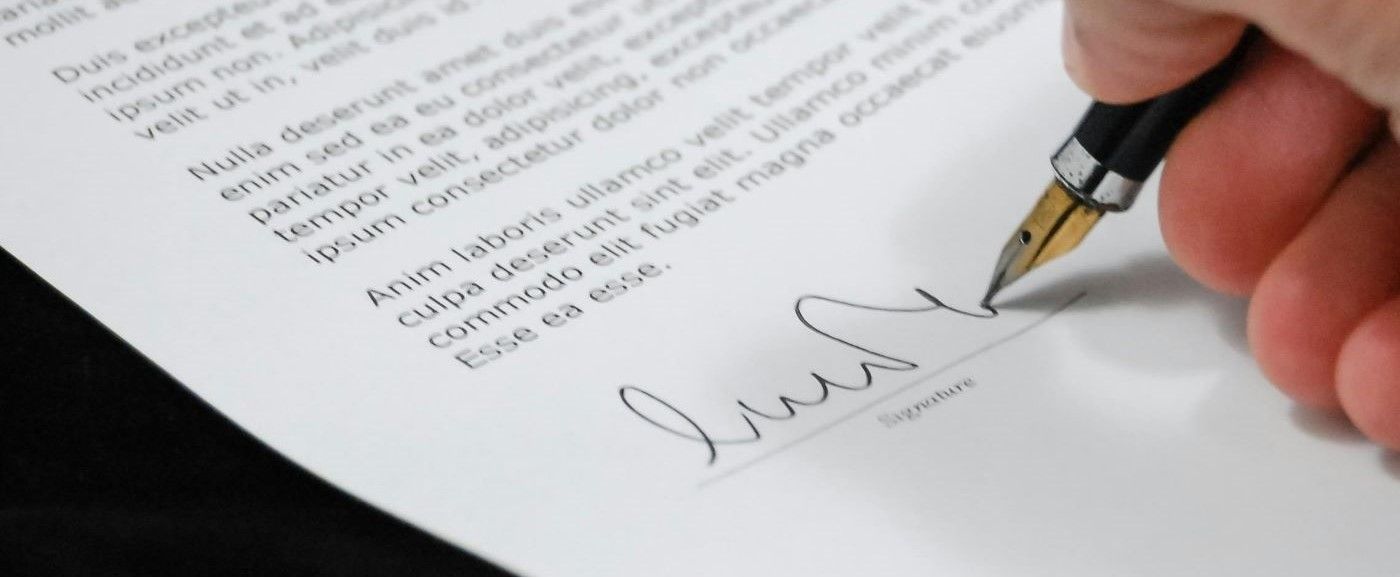 mollit
Duis excepteur
incididunt et ad
ipsum non. Adipisicing
velit ut in, velit duis id.
Nulla deserunt amet duis
enim sed ea eu consectetur
pariatur in ea dolor velit,
tempor velit, adipisicing, excepteur
ipsum consectetur dolor non occaecat
Anim laboris ullamco velit tempor velit
culpa deserunt sint elit. Ullamco minim
commodo elit fugiat magna occaecat
Esse ea esse.
Signature